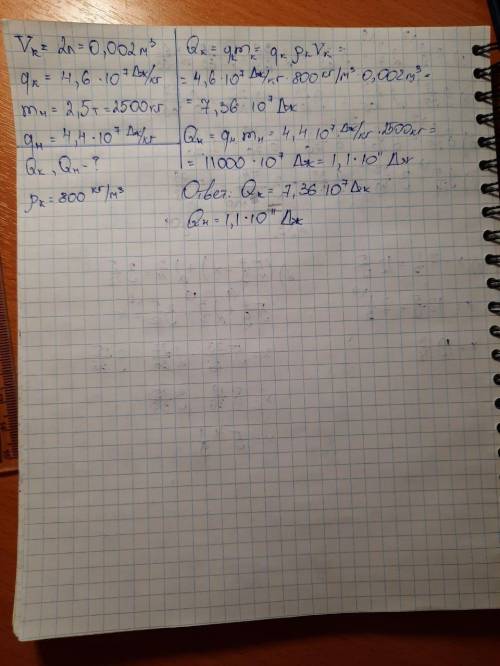 Vк = 2л = 0,002 м³
qк = 4,6 · 10⁷ Дж/кг
mн = 2,5 т = 2500 кг
qн = 4,4 · 10⁷ Дж/кг
Qк, Qн - ?
ρк = 800 кг/м³
Qк = qmк = qк ρк Vк =
= 4,6 · 10⁷ Дж/кг · 800 кг/м³ · 0,002 м³ =
= 7,36 · 10⁷ Дж
Qн = qн mн = 4,4 · 10⁷ Дж/кг · 2500 кг =
= 11000 · 10⁷ Дж = 1,1 · 10¹¹ Дж
Ответ: Qк = 7,36 · 10⁷ Дж
Qн = 1,1 · 10¹¹ Дж